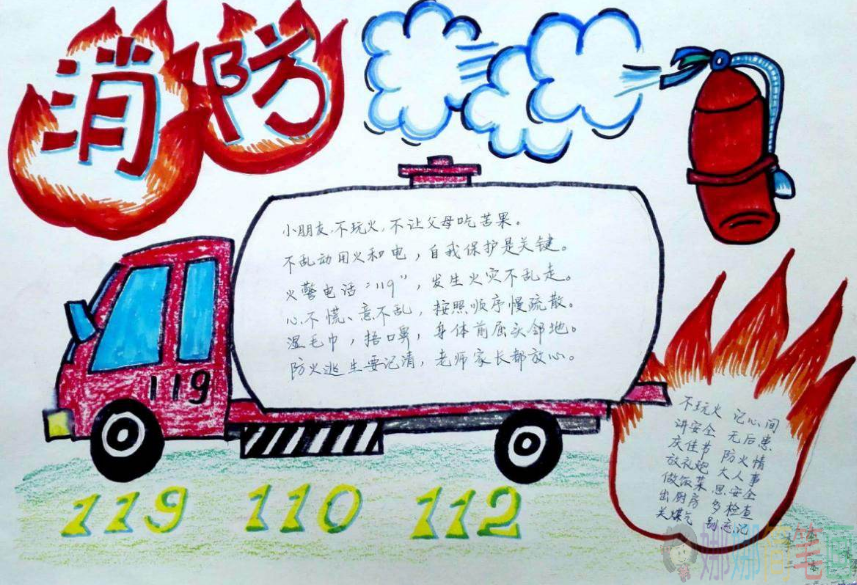 消防
小朋友,不玩火,不让父母吃苦果。
不乱动用火和电,自我保护是关键。
火警电话"119",发生火灾不乱走。
心不慌、意不乱,按照顺序慢疏散。
湿毛巾,捂口鼻,身体前屈头邻地。
防火逃生要记清,老师家长都放心。
119
不玩火 记心间
讲安全 无后患
庆佳节 防火情
放礼炮 大人事
做饭菜 思安全
出厨房 多检查
关煤气 别忘记
119 110 112
娜娜画笔